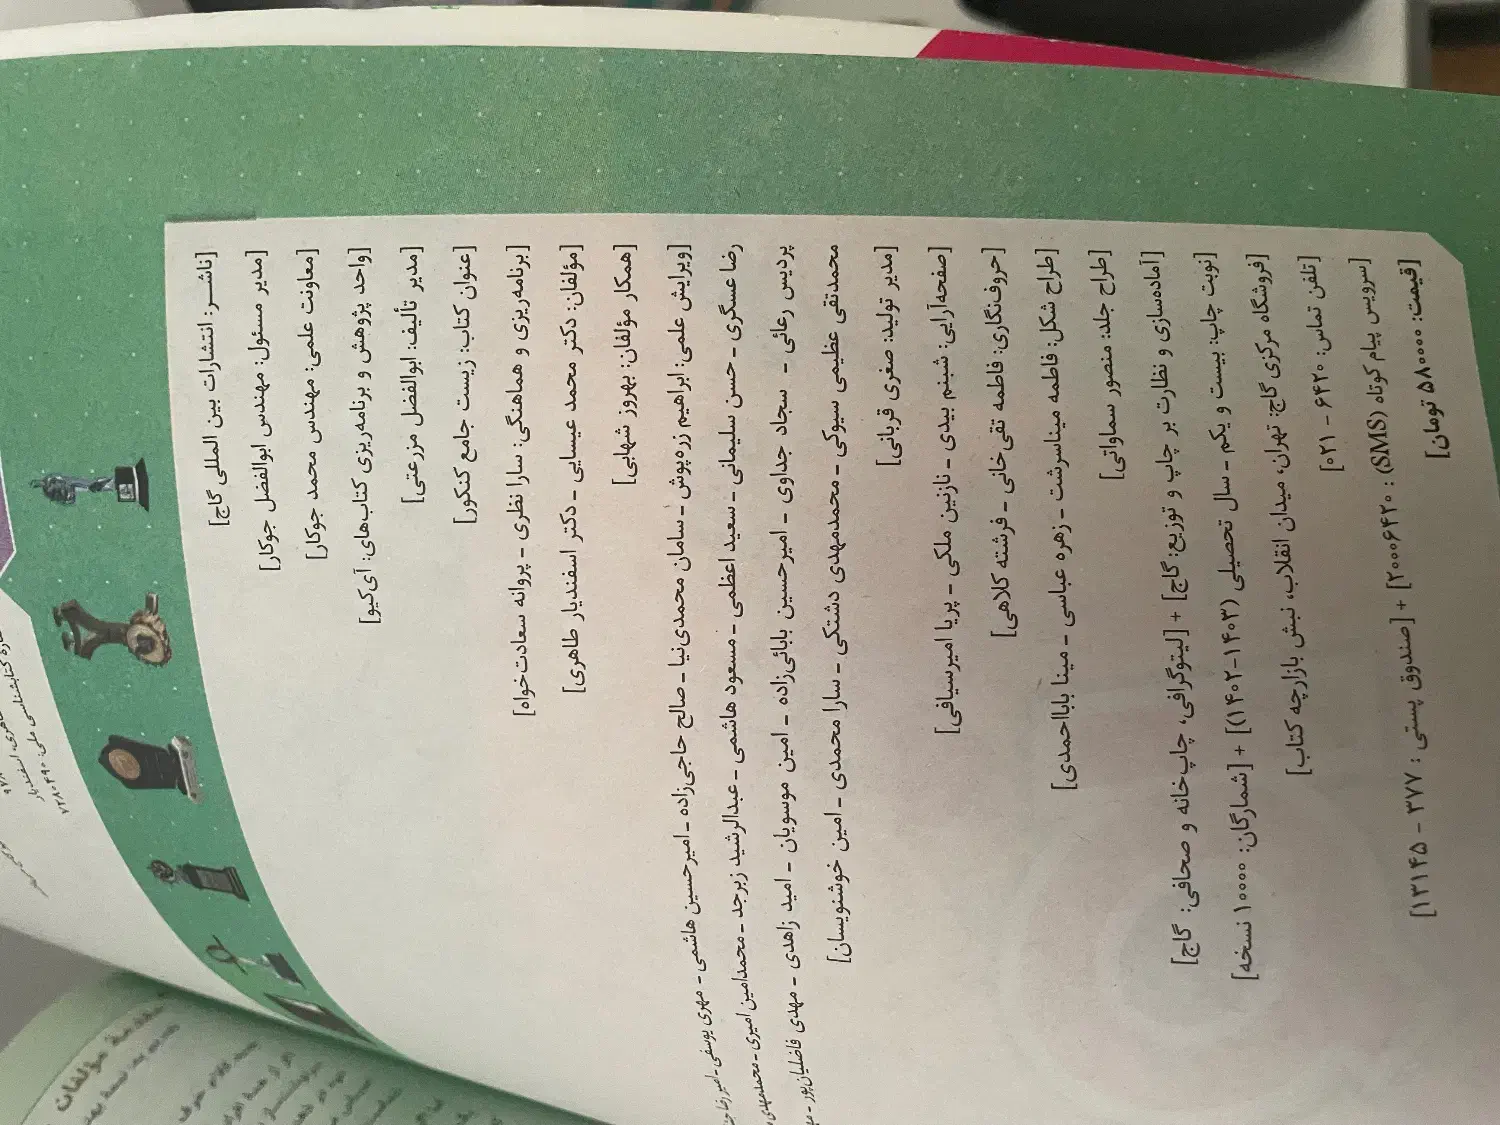 [ناشـر: انتشارات بین المللی گاج]
[مدیر مسئول: مهندس ابوالفضل جوکار]
[معاونت علمی: مهندس محمد جوکار]
[واحد پژوهش و برنامه‌ریزی کتاب‌های: آی‌کیو]
[مدیر تألیف: ابوالفضل مزرعتی]
[عنوان کتاب: زیست جامع کنکور]
[برنامه‌ریزی و هماهنگی: سارا نظری - پروانه سعادت‌خواه]
[مؤلفان: دکتر محمد عیسایی - دکتر اسفندیار طاهری]
[همکار مؤلفان: بهروز شهابی]
[ویرایش علمی: ابراهیم زره‌پوش - سامان محمدی‌نیا - صالح حاجی‌زاده - امیرحسین هاشمی - مهری یوسفی - امیررضا
رضا عسگری - حسن سلیمانی - سعید اعظمی - مسعود هاشمی - عبدالرشید زبرجد - محمدامین امیری - محمدمهدی
پردیس رعائی - سجاد جداوی - امیرحسین بابائی‌زاده - امین موسویان - امید زاهدی - مهدی فاضلیان‌پور -
محمدتقی عظیمی سیوکی - محمدمهدی دشتکی - سارا محمدی - امین خوشنویسان]
[مدیر تولید: صغری قربانی]
[صفحه‌آرایی: شبنم بیدی - نازنین ملکی - پریا امیرسیافی]
[حروف‌نگاری: فاطمه تقی‌خانی - فرشته کلاهی]
[طراح شکل: فاطمه میناسرشت - زهره عباسی - مینا بابااحمدی]
[طراح جلد: منصور سماواتی]
[آماده‌سازی و نظارت بر چاپ و توزیع: گاج] + [لیتوگرافی، چاپ‌خانه و صحافی: گاج]
[نوبت چاپ: بیست و یکم - سال تحصیلی (۱۴۰۳-۱۴۰۲)] + [شمارگان: ۱۰۰۰۰ نسخه]
[فروشگاه مرکزی گاج: تهران، میدان انقلاب، نبش بازارچه کتاب]
[تلفن تماس: ۶۴۲۰ - ۰۲۱]
[سرویس پیام کوتاه (SMS): ۲۰۰۰۶۴۲۰] + [صندوق پستی : ۳۷۷ - ۱۳۱۴۵]
[قیمت: ۵۸۰۰۰۰ تومان]